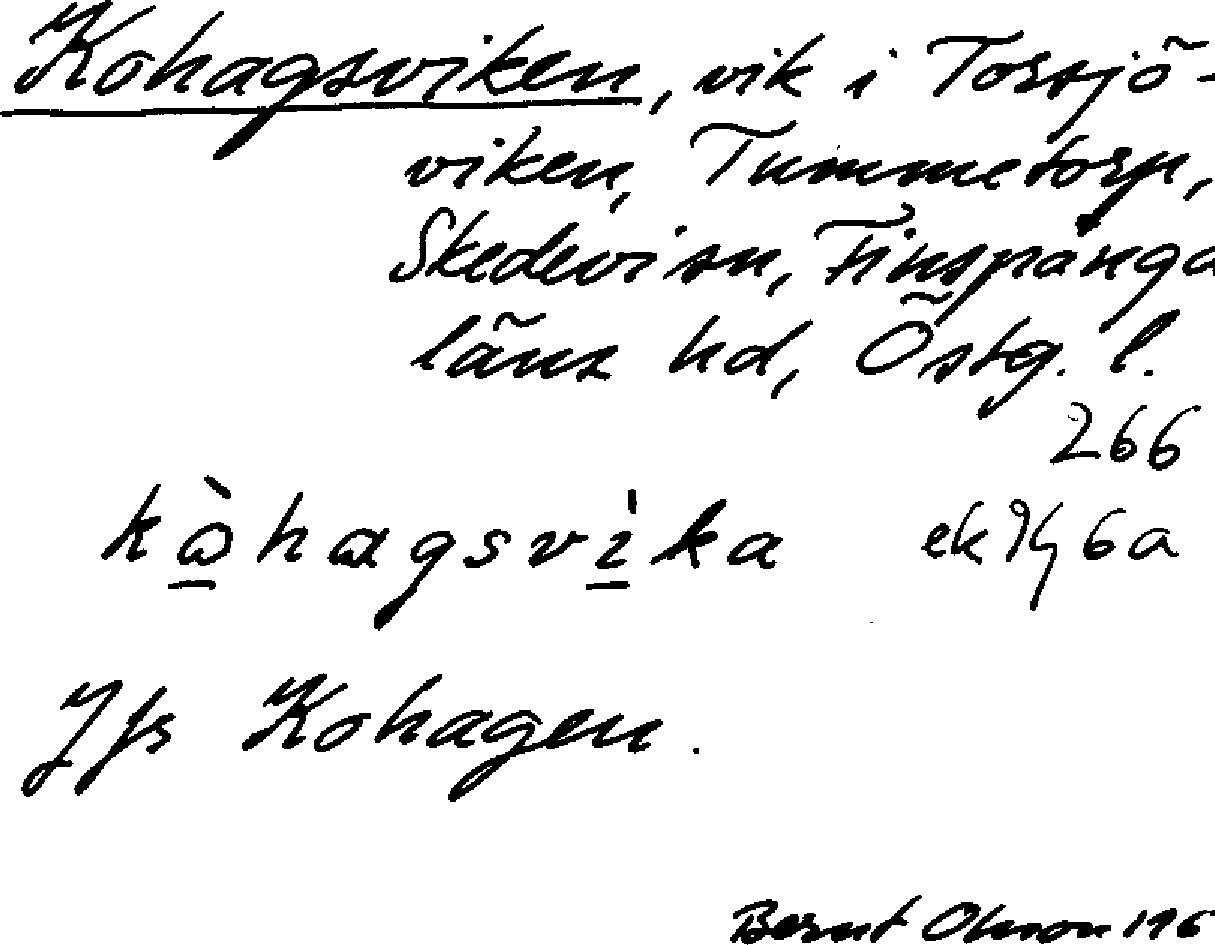 Kohagsviken, vik i Torsjö-
viken, Tummetorp,
Skedevi sn, Finspånga
läns hd, Östg. l.
266
kὼhagsvìka ek 9G 6a
Jfr Kohagen.
Bernt Olsson 196